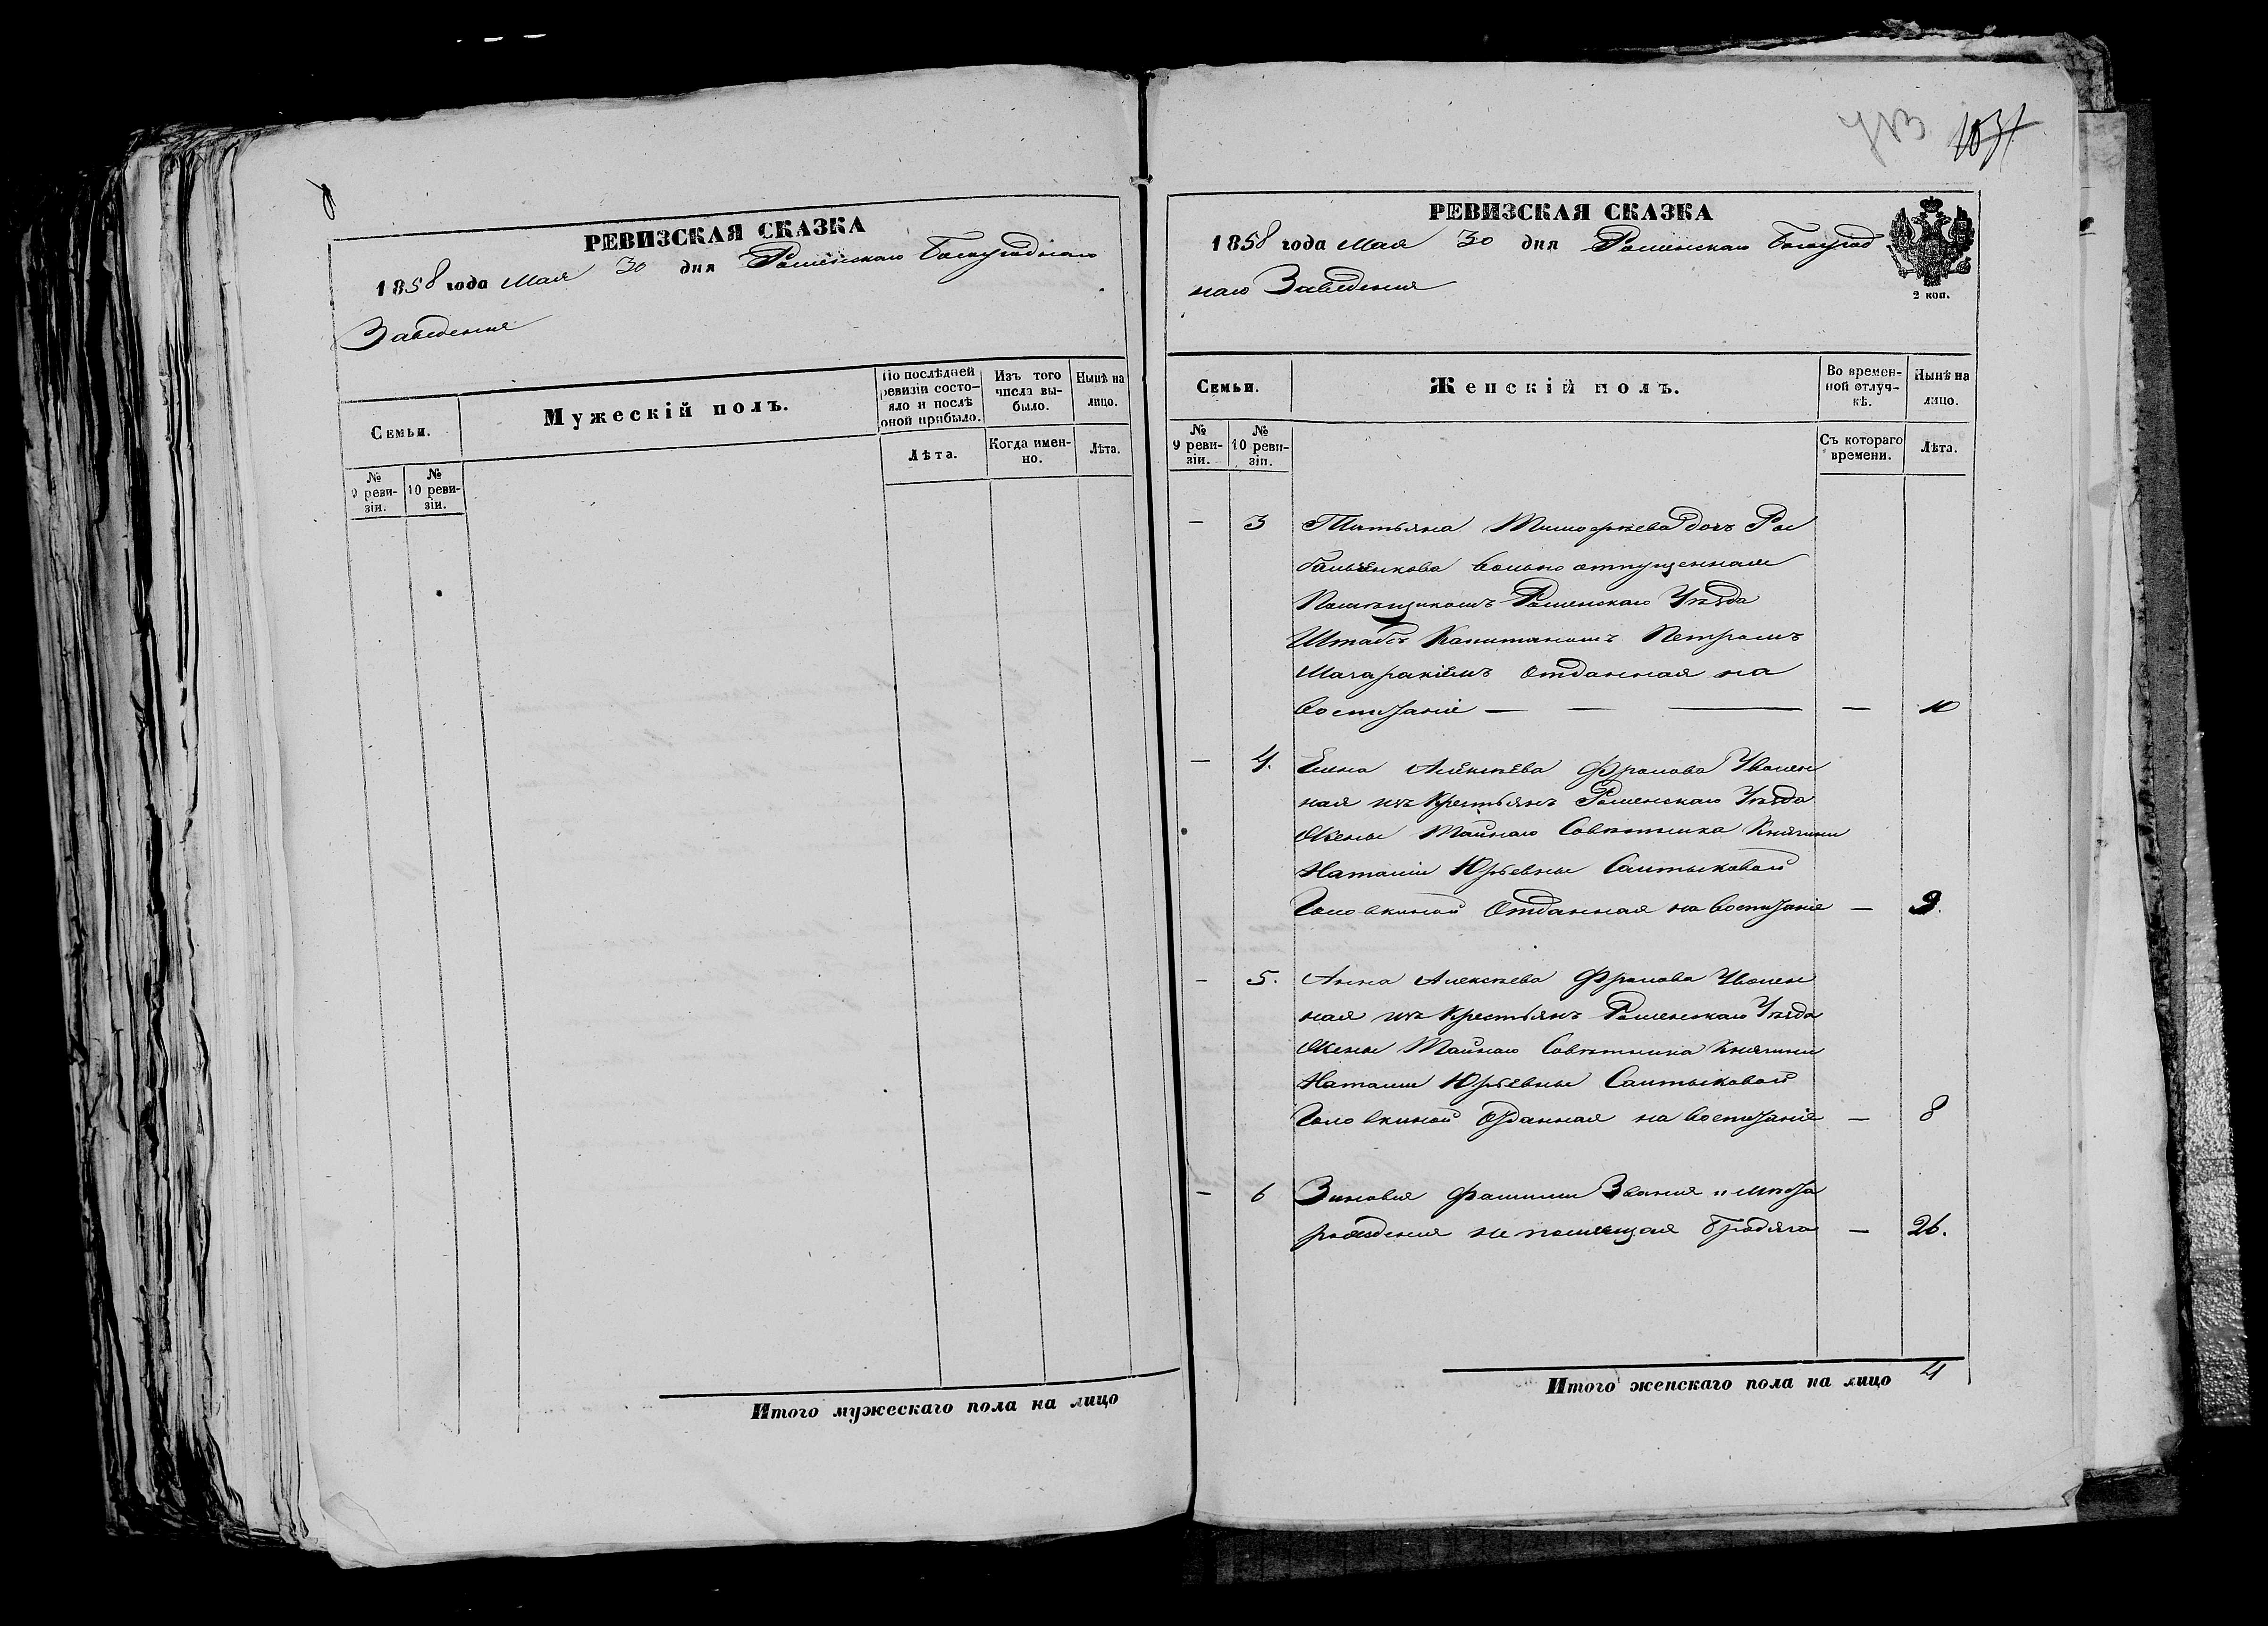 РЕВИЗСКАЯ СКАЗКА
1858 года Мая 30 дня Роменскаго Богоугоднаго
Заведения
Семьи.
Мужескій полъ.
По послѣдней ревизіи состояло и послѣ оной прибыло.
Изъ того числа выбыло.
Нынѣ на лицо.
№ 9 ревизіи.
№ 10 ревизіи.
Лѣта.
Когда именно.
Лѣта.
Итого мужескаго пола на лицо
1031
РЕВИЗСКАЯ СКАЗКА
1858 года Мая 30 дня Роменскаго Богоугод
наго Заведения
2 коп.
Семьи.
Женскій полъ.
Во временной отлучкѣ.
Нынѣ на лицо.
№ 9 ревизіи.
№ 10 ревизіи.
Съ котораго времени.
Лѣта.
— 3 Татьяна Тимофѣева дочь
вольно отпущенная
Помѣщикомъ Роменскаго Уѣзда
Штабсъ Капитаномъ Петромъ
Отданная на
воспитаніе — — — — 10
— 4. Елена Алексѣева Фролова Уволен
ная изъ Крестьянъ Роменскаго Уѣзда
Жены Тайнаго Совѣтника Княгини
Наталіи Юрьевны Салтыковой
Головкиной Отданная на воспитаніе — 9.
— 5. Анна Алексѣева Фролова Уволен
ная изъ Крестьянъ Роменскаго Уѣзда
Жены Тайнаго Совѣтника Княгини
Наталии Юрьевны Салтыковой
Головкиной Отданная на воспитаніе — 8
— 6 Зиновия фамилии Звания и мѣста
рождения не помнящая бродяга — 26.
Итого женскаго пола на лицо 4